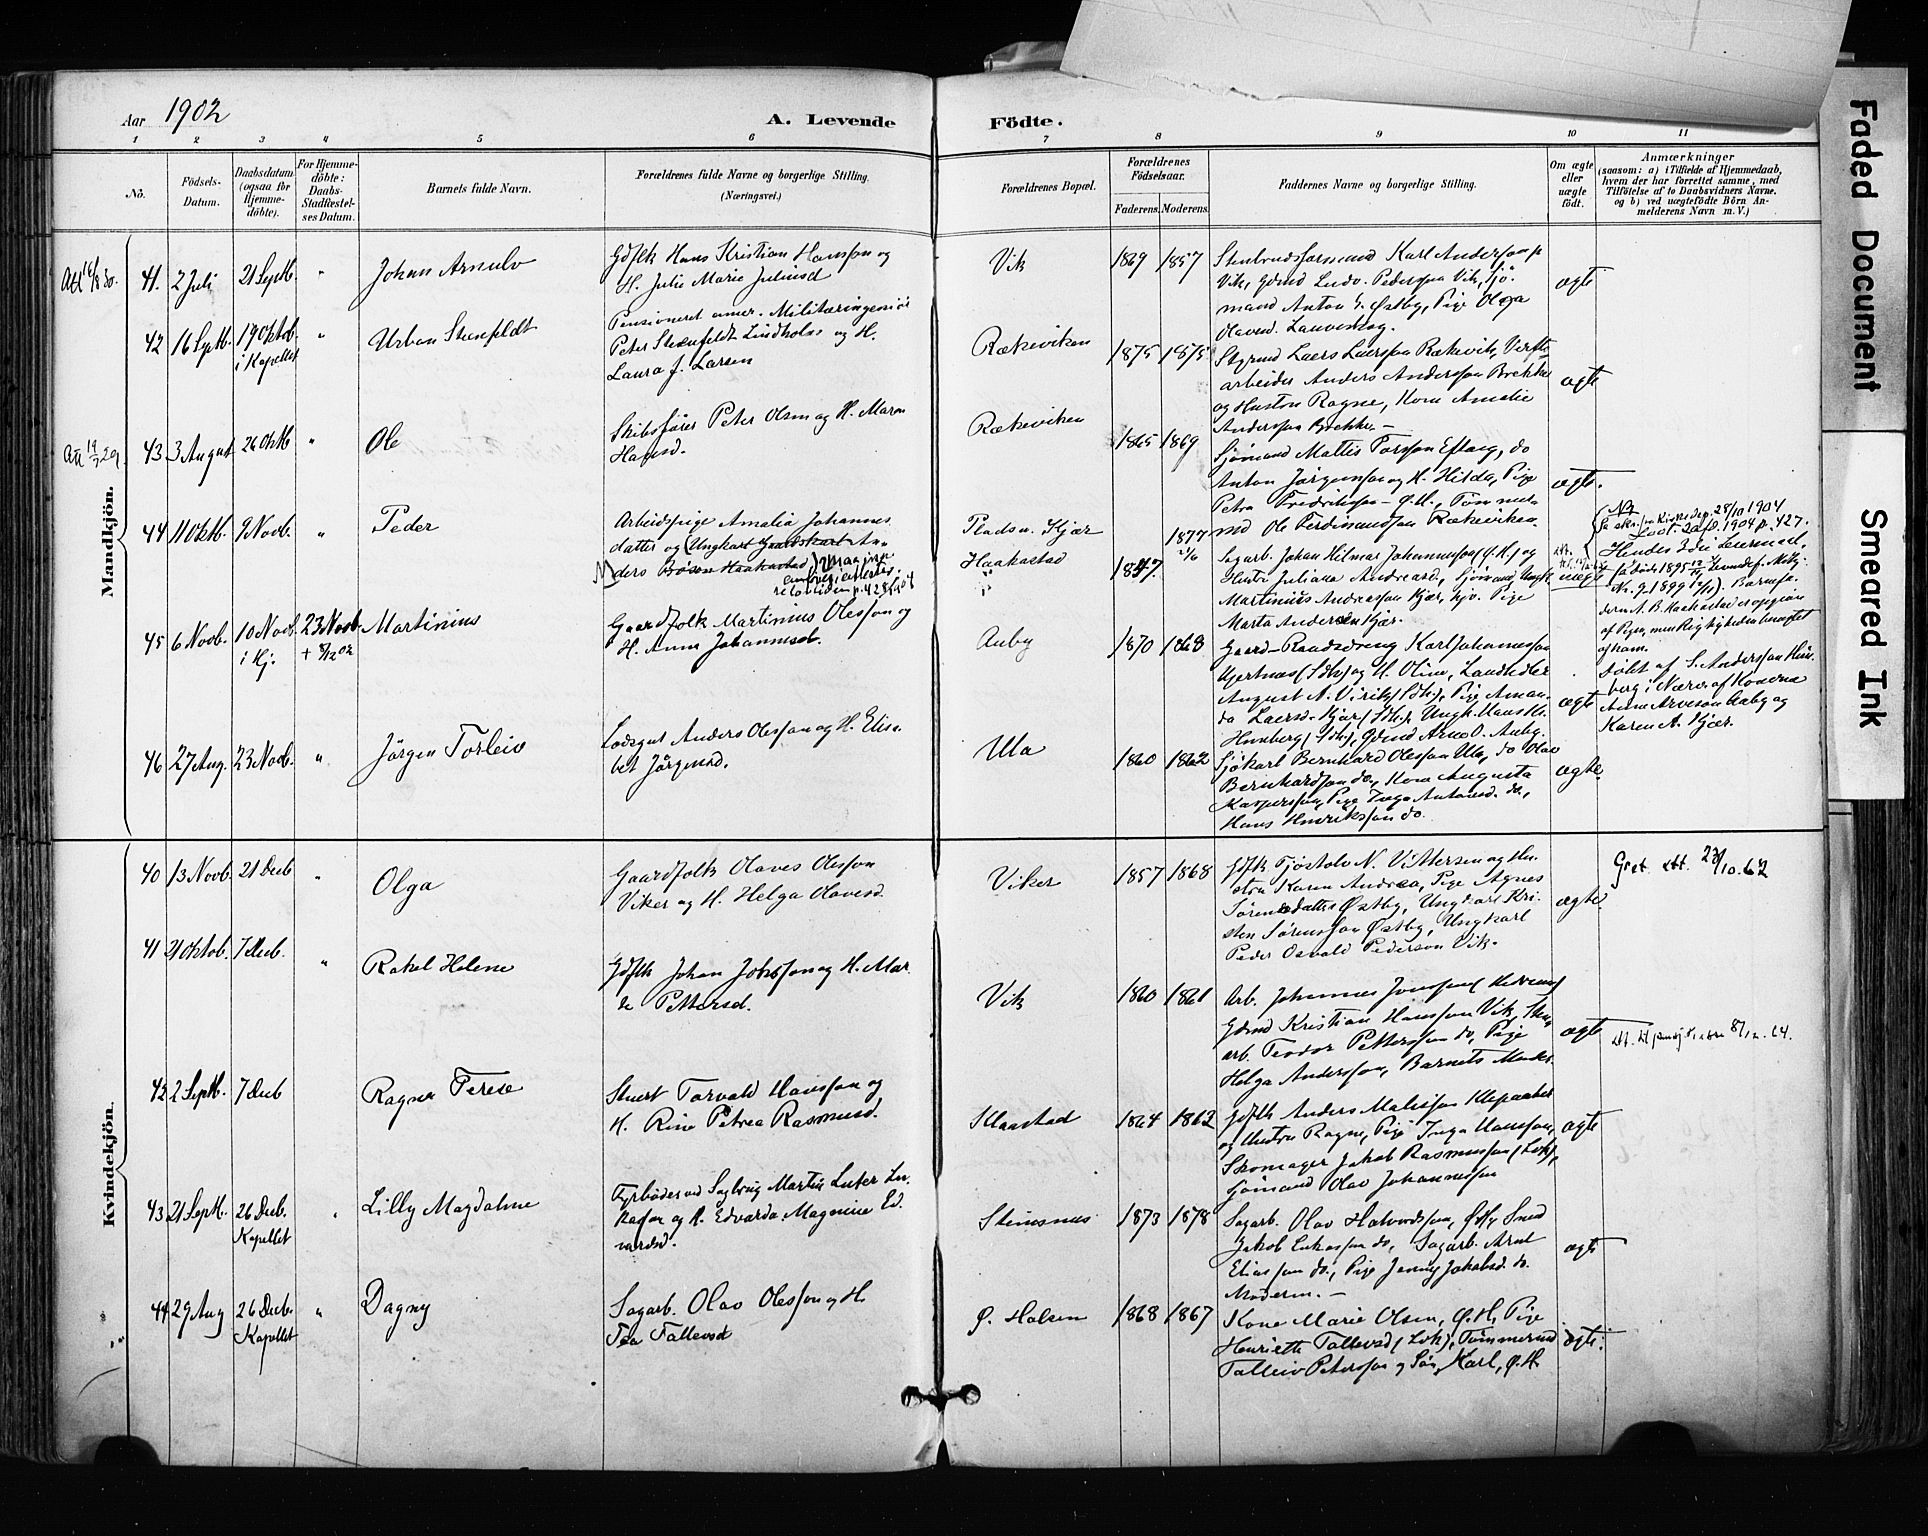 Faded Document
Smeared Ink
Aar 1902
A. Levende Födte.
1 2 3 4 5 6 7 8 9 10 11
No.
Födsels-Datum.
Daabsdatum (ogsaa for Hjemme-döbte).
For Hjemme-döbte: Daabs-Stadfæstelses Datum.
Barnets fulde Navn.
Forældrenes fulde Navne og borgerlige Stilling.
(Næringsvei.)
Forældrenes Bopæl.
Forældrenes Födselsaar.
Faderens. Moderens.
Faddernes Navne og borgerlige Stilling.
Om ægte eller uægte födt.
Anmærkninger
(saasom: a) i Tilfælde af Hjemmedaab,
hvem der har forrettet samme, med
Tilföielse af to Daabsvidners Navne,
og b) ved uægtefödte Börn An-
melderens Navn m. V.)
Mandkjön.
41. 2 Juli 21 Septb. " Johan Arnulv
Gdflk Hans Kristian Hansson og
H. Julie Marie Juliusd
Vik 1869 1857
Stenbrudsformand Karl Andersson
Vik, Gdmd Ludv. Pedersson Vik, Sjö-
mand Anton Østby, Pige Olga
ægte
42 16 Septb. 19 Oktob. i Kapellet " Urban Stenfeldt
Pensioneret amer. Militæringeniör
Peter Steenfeldt Lindholm og H.
Laura J. Larsen
Rækeviken 1875 1875
Styrmd Laers Laersson Rækevik, Verfts-
arbeider Anders Andersson Brekke
og Hustru Ragne, Kone Amalie
Andersson Brekke. —
ægte
43. 3 August 26 Oktb " Ole
Skibsförer Peter Olsen og H. Maren
Hansd.
Rækeviken 1865 1869
Sjömand Mattis Torsson Eftang, do
Anton Jörgensson og H. Hilda, Pige
Petra Fredriksson — Ø.H., Tömmer-
md Ole Ferdinandsson Rækeviken
ægte.
44 11 Oktb. 9 Novb. " Peder
Arbeidspige Amalia Johannes-
datter og Ungkarl Gaardskarl An-
ders Bösen Haakastad
Pladsn. Kjær
Haakastad
1847. 1877
Sagarb. Johan Hilmar Johannesson (Ø.H.) og
Hustru Juliane Andreasd., Sjömand Ungk.
Martinius Andreasson Kjær, hjv. Pige
Marta Andersen Kjær.
uægte
NB
28/10 1904
Hendes 3die Leiermaal,
af Pigen, men Rigtigheden benægtet
af ham.
45 6 Novb. 10 Novb. i Hj. 23 Novb. + 8/12 02 Martinius
Gaardfolk Martinius Olesson og
H. Anna Johannesd.
Auby 1870 1868
Gaard- Raadsdreng Karl Johannesson
Gjertnes (Sdh) og H. Oline, Landhdler
August N. Virik (Sdh), Pige Aman-
da Laersd. Kjær (Sdh), Ungk. Hans Kr.
Himberg (Sdh), Gdmd Arne O. Auby.
ægte
Döbt af S. Andersson Him-
berg i Nærv. af Konerne
Anne Arvesen Aaby og
Karen A. Kjær.
46 27 Aug. 23 Novb. " Jörgen Torleiv
Lodsgut Anders Olesson og H. Elisa-
bet Jörgensd.
Ula 1860 1862
Sjökarl Bernhard Olesson Ula, do Olav
Bernhardsson do, Kone Augusta
Kaspersson, Pige Inga Antonsd. do,
Hans Hendriksson do.
ægte
Kvindekjön.
40 13 Novb. 21 Decb " Olga
Gaardfolk Olaves Olesson
Viker og H. Helga Olavesd
Viker 1857 1868
Gdflk Tjöstolv N. Vittersen og Hu-
stru Karen Andrea, Pige Agnes
Sörensdatter Østby, Ungkarl Kri-
sten Sörensson Østby, Ungkarl
Peder Osvald Pederson Vik.
ægte.
att. 23/10. 62
41 21 Oktob. 7 Decb. " Rakel Helene
Gdflk Johan Jakobsson og H. Mar-
te Pettersd.
Vik 1860 1861
Arb. Johannes Jonsson
Gdmd Kristian Hansson Vik, Sten-
arb. Teodor Pettersson do, Pige
Helga Andersson, Barnets Moder.
ægte
8/12. 64.
42 2 Septb. 7 Decb Ragna Terese
Stuert Torvald Hansson og
H. Rine Petrea Rasmusd.
Klaastad 1864 1862
Gdflk Anders Mathisson Klepaaker
og Hustru Ragne, Pige Inga Hansson,
Skomager Jakob Rasmusson (Lvk),
Sjömand Olav Johannesson
ægte
43 21 Septb. 26 Decb. Kapellet " Lilly Magdalene
Fyrböder ved Sagbrug Martin Luter Lu-
kasson og H. Edvarda Magnine Ed-
vardsd.
Steinsnes 1873 1878
Sagarb. Olav Halvordsson, Østby, Smed
Jakob Lukasson do, Sagarb. Arnt
Eliasson do., Pige Jenny Jakobsd. do.
Moderen. —
ægte
44 29 Aug 26 Decb. Kapellet " Dagny
Sagarb. Olav Olesson og H.
Tea Tallevsd
Ø. Halsen 1868 1867
Kone Marie Olsen, Ø.H., Pige
Henriette Tallevsd (Lvk), Tömmermd
Talleiv Petersson og Sön Karl, Ø.H.
ægte.